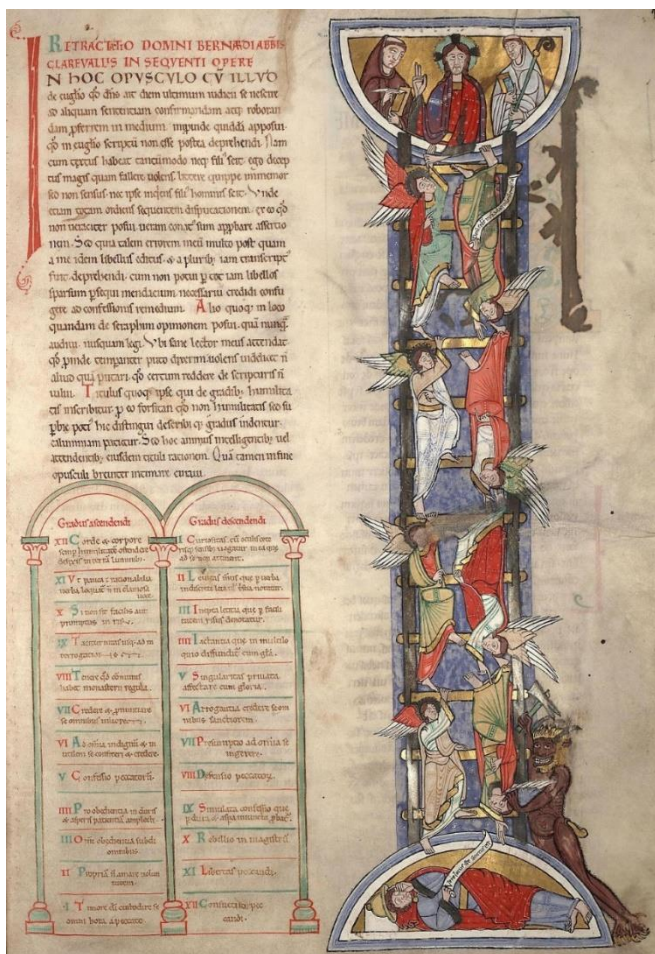 RETRACTATIO DOMNI BERNARDI ABBIS
CLAREVALLIS IN SEQUENTI OPERE
IN HOC OPUSCULO CŪ ILLUD
de euglio qd dns ait diem ultimum iudicii se nescire
ad aliquam sententiam confirmandam atq; roboran
dam pferrem in medium. inpuide quiddā apposui.
qd in euglio scriptū non esse postea deprehendi. Nam
cum textus habeat tantummodo neq; fili scit. ego decep
tus magis quam fallere volens. littere quippe inmemor
sed non sensus. nec ipse inquiens fili hominis scit. Unde
etiam totam ordiens sequentem disputationem. ex eo qd
non veraciter posui. veram conat sum approbare assertio
nem. Sed quia talem errorem meū multo post quam
a me idem libellus editus. & a plurib; iam transcript
fuit deprehendi. cum non potui p tot iam libellos
sparsum psequi mendacium. necessariū credidi confu
gere ad confessionis remedium. Alio quoq; in loco
quandam de seraphim opinionem posui. quā nunq̄
audivi. nusquam legi. Ubi sane lector meus attendat
qd pinde temperanter puto dixerim. volens videlicet n̄
aliud quā putari. qd certum reddere de scripturis n̄
valui. Titulus quoq; ipse qui de gradib; humilita
tis inscribitur. p eo forsitan qd non humilitatis sed su
pbie poti hic distingui describi q; gradus videntur.
calumniam patietur. Sed hoc minus intelligentib; vel
attendentib; eiusdem tituli rationem. Quā tamen in fine
opusculi breviter intimare curavi.
Gradus ascendendi
XII Corde & corpore
semp humilitatē ostendere
defixis in terrā luminib;
XI Ut pauca & rationabilia
verba loquat n̄ in clamosa
voce.
X Si non sit facilis aut
promptus in risu.
IX Taciturnitas usq; ad in
terrogatione
VIII Tenere qd communis
habet monasterii regula.
VII Credere & pnuntiare
se omnibus viliorem.
VI Ad omia indignū & in
utilem se confiteri & credere.
V Confessio peccatorū.
IIII Pro obedientia in duris
& asperis patientiā amplecti.
III Omi obedientia subdi
maioribus.
II Propriā n̄ amare volun
tatem.
I Timore di custodire se
omni hora a peccato.
Gradus descendendi
I Curiositas cū oculis
II Levitas
III Inepta leticia
IIII Iactantia que in multilo
quio diffundit
V Singularitas privata
affectare cum gloria.
VI Arrogantia credere se om
nibus sanctiorem.
VII Presumptio ad omnia se
ingerere.
VIII Defensio peccatorū.
IX Simulata confessio que
X Rebellio in magistrū
XI Libertas peccandi.
XII Consuetudo pec
candi.